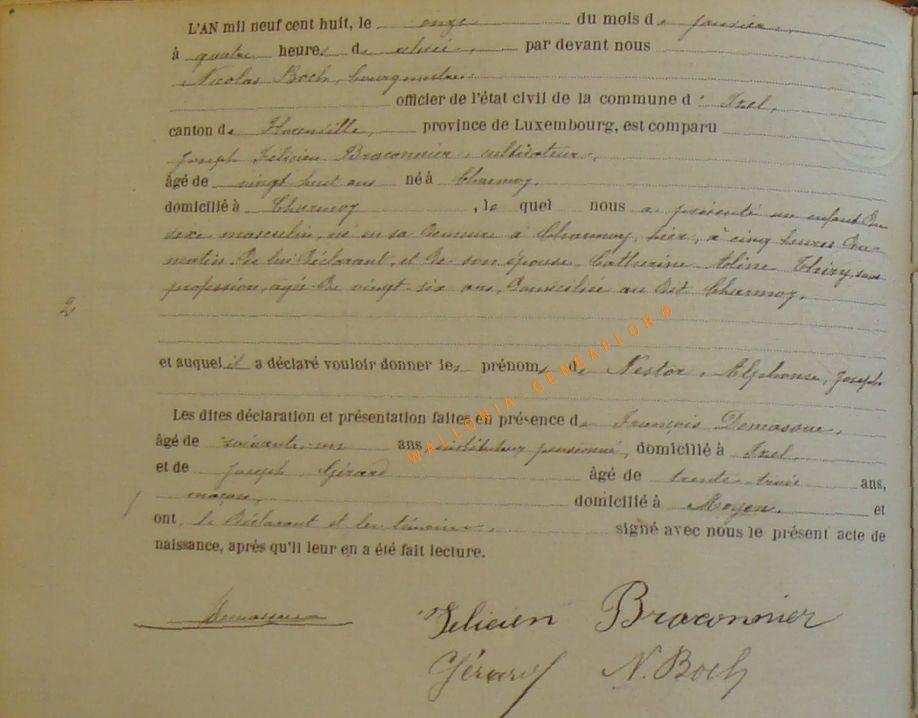 L'AN mil neuf cent huit, le onze du mois de janvier
à quatre heures de relevée, par devant nous
Nicolas Boch, bourgmestre
officier de l'état civil de la commune d' Izel,
canton de Florenville, province de Luxembourg, est comparu
Joseph Félicien Braconnier, cultivateur,
âgé de vingt huit ans né à Charmoy,
domicilié à Charmoy, le quel nous a présenté un enfant du
sexe masculin, né en sa demeure à Charmoy, hier, à cinq heures du
matin de lui déclarant, et de son épouse Catherine Aline Thiry, sans
profession, agée de vingt-six ans, domiciliée au dit Charmoy,
2
et auquel il a déclaré vouloir donner les prénoms de Nestor, Alphonse, Joseph
Les dites déclaration et présentation faites en présence de François Demasoue,
âgé de soixante-un ans, instituteur pensionné, domicilié à Izel,
et de Joseph Gérard âgé de trente-trois ans,
maçon, domicilié à Moyen, et
ont le déclarant et les témoins, signé avec nous le présent acte de
naissance, après qu'il leur en a été fait lecture.
Félicien Braconnier
Gérard N. Boch
WALLONIA-GENEAFLOR®